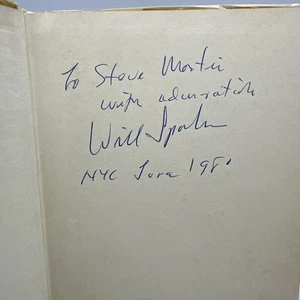 To Steve Martin
with admiration
Will
NYC June 1981